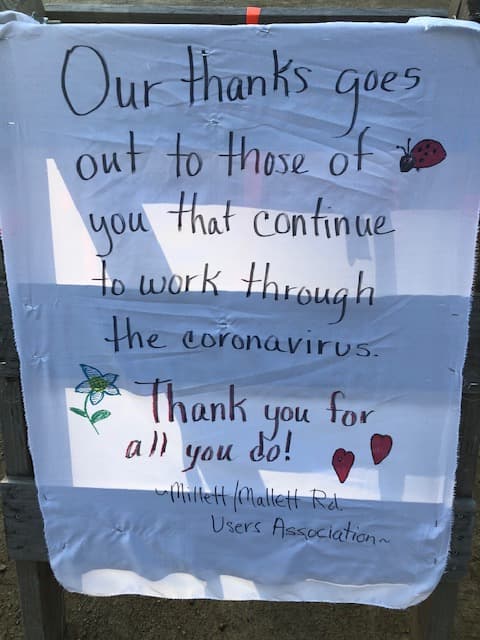 Our thanks goes
out to those of
you that continue
to work through
the coronavirus.
Thank you for
all you do!
~Millett/Mallett Rd.
Users Association~